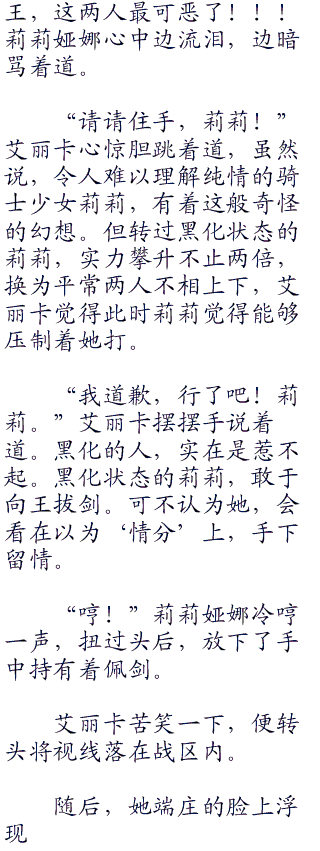 王，这两人最可恶了！！！
莉莉娅娜心中边流泪，边暗
骂着道。
“请请住手，莉莉！”
艾丽卡心惊胆跳着道，虽然
说，令人难以理解纯情的骑
士少女莉莉，有着这般奇怪
的幻想。但转过黑化状态的
莉莉，实力攀升不止两倍，
换为平常两人不相上下，艾
丽卡觉得此时莉莉觉得能够
压制着她打。
“我道歉，行了吧！莉
莉。”艾丽卡摆摆手说着
道。黑化的人，实在是惹不
起。黑化状态的莉莉，敢于
向王拔剑。可不认为她，会
看在以为‘情分’上，手下
留情。
“哼！”莉莉娅娜冷哼
一声，扭过头后，放下了手
中持有着佩剑。
艾丽卡苦笑一下，便转
头将视线落在战区内。
随后，她端庄的脸上浮
现